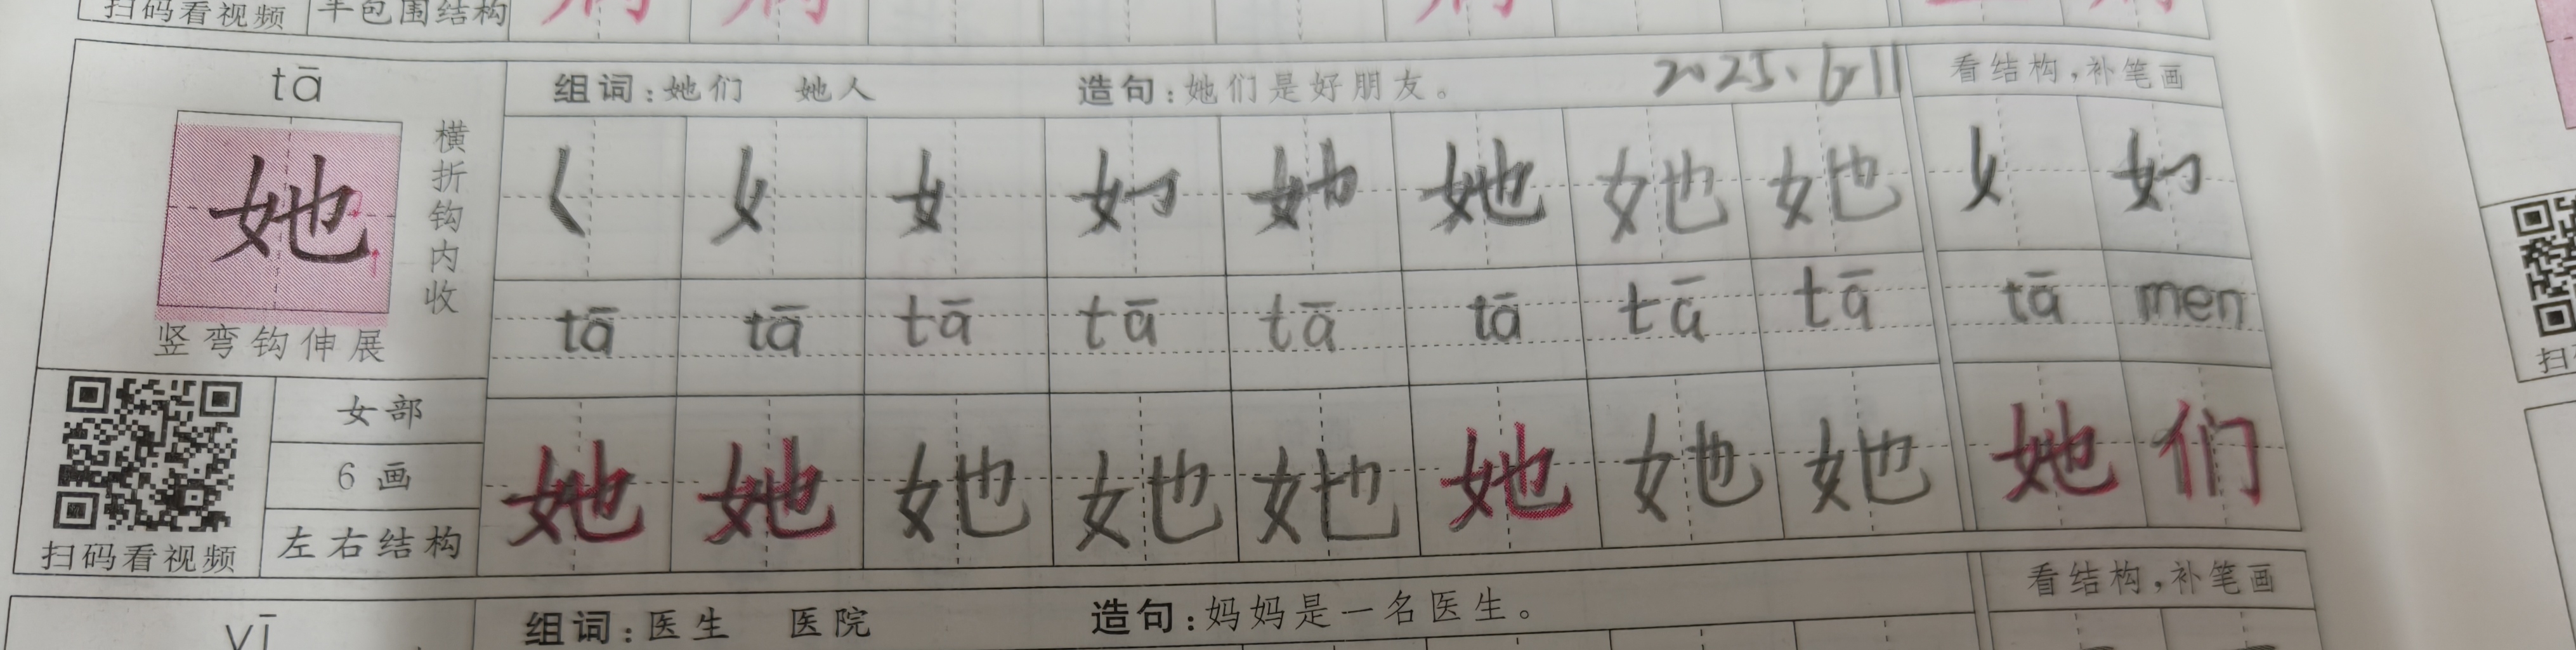 扫码看视频 半包围结构
tā
组词：她们 她人 造句：她们是好朋友。 2025、6.11 看结构，补笔画
她 横折钩内收
竖弯钩伸展
她 她 她
tā tā tā tā tā tā tā tā tā men
女部
6 画
左右结构
扫码看视频
她 她 她 她 她 她 她 她 她 们
组词：医生 医院 造句：妈妈是一名医生。 看结构，补笔画
yī
扫